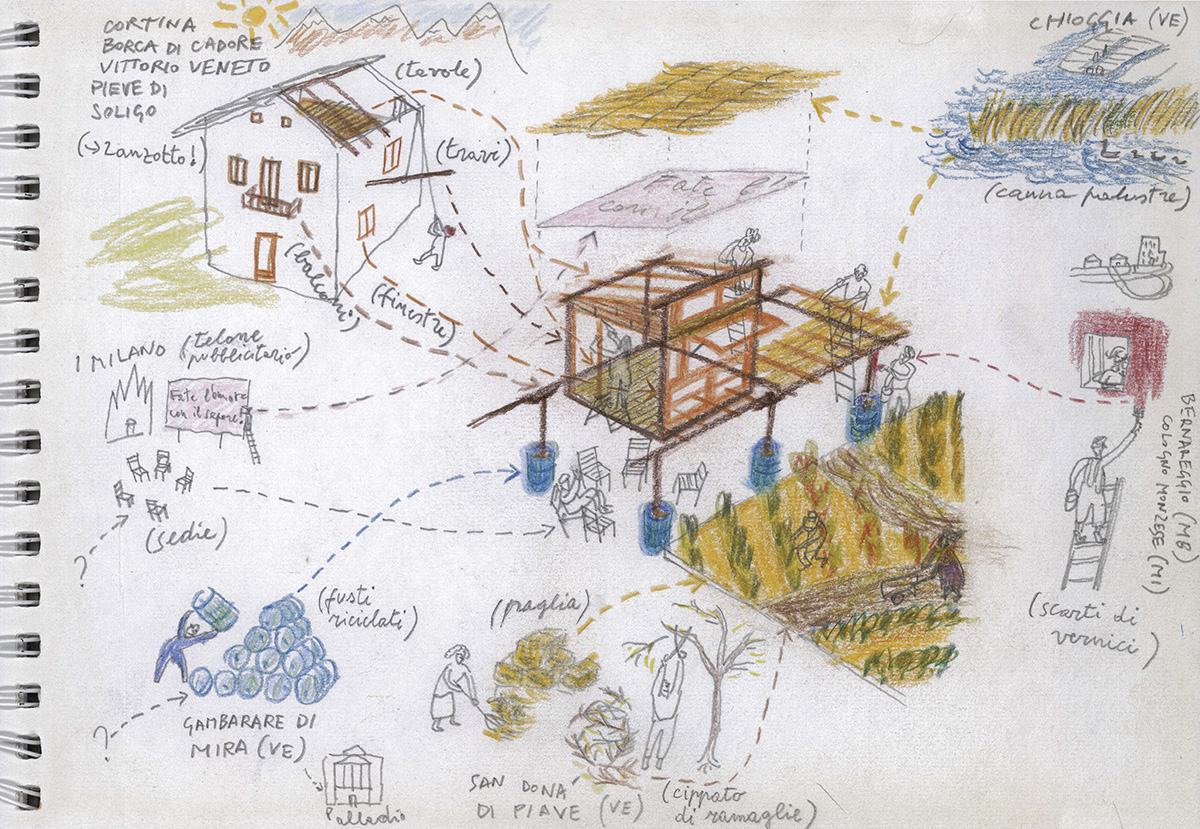 CORTINA
BORCA DI CADORE
VITTORIO VENETO
PIEVE DI
SOLIGO
(→ Zanzotto!)
(tavole)
(travi)
(balconi)
(finestre)
Fate l'
con il
CHIOGGIA (VE)
(canna palustre)
MILANO (telone
pubblicitario)
Fate l'amore
con il sapore!
(sedie)
?
(fusti
riciclati)
?
GAMBARARE DI
MIRA (VE)
Palladio
(paglia)
SAN DONA'
DI PIAVE (VE)
(cippato
di ramaglie)
BERNAREGGIO (MB)
COLOGNO MONZESE (MI)
(scarti di
vernici)